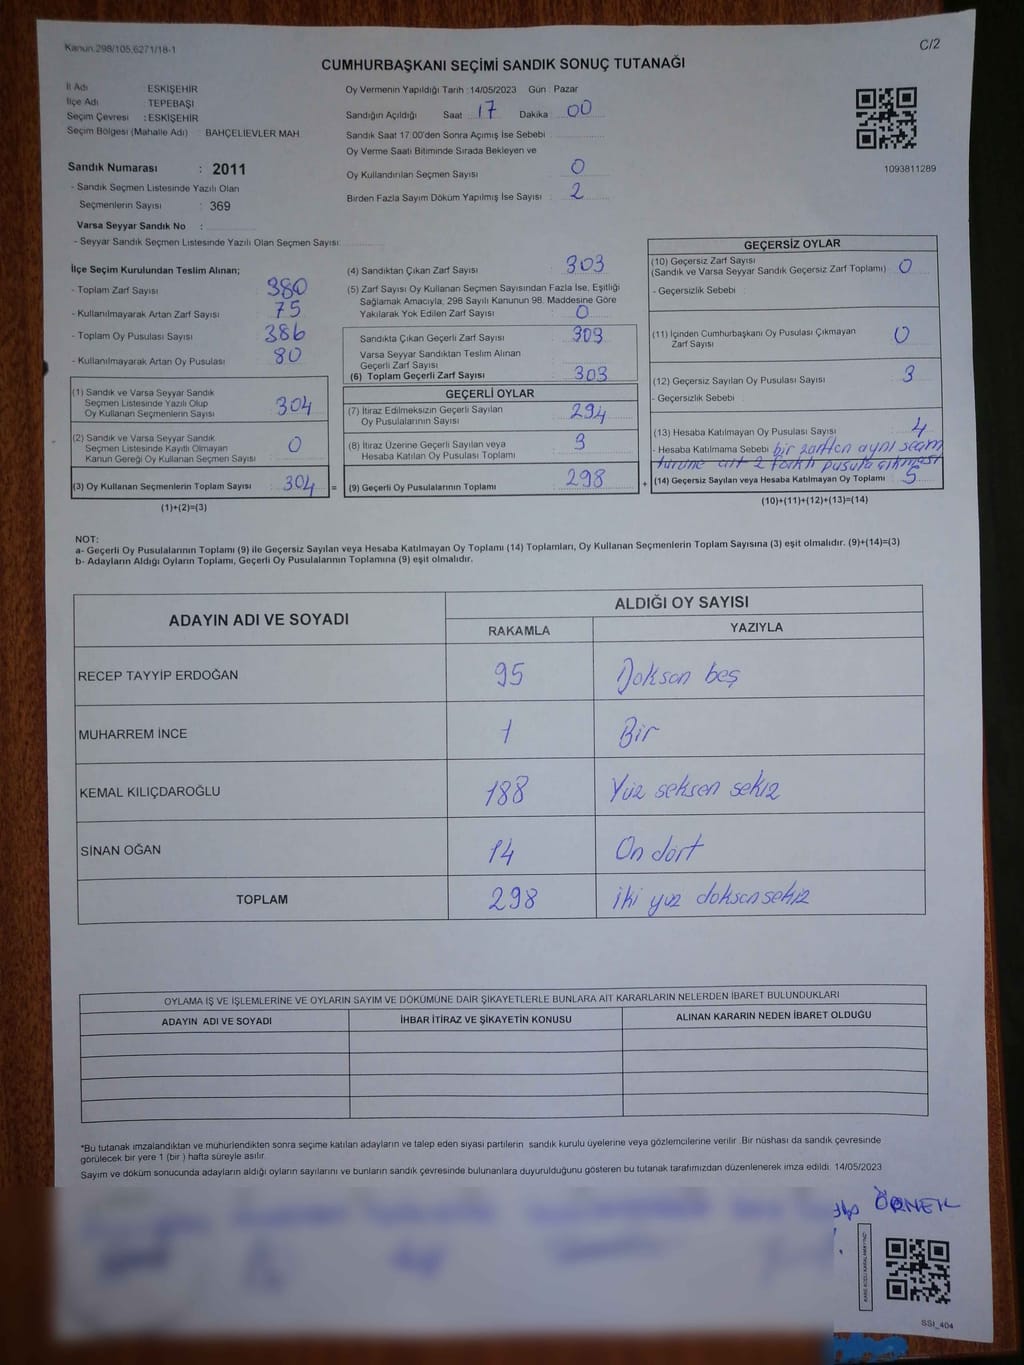 Kanun.298/105,6271/18-1
C/2
CUMHURBAŞKANI SEÇİMİ SANDIK SONUÇ TUTANAĞI
İl Adı : ESKİŞEHİR
İlçe Adı : TEPEBAŞI
Seçim Çevresi : ESKİŞEHİR
Seçim Bölgesi (Mahalle Adı) : BAHÇELİEVLER MAH.
Sandık Numarası : 2011
- Sandık Seçmen Listesinde Yazılı Olan
Seçmenlerin Sayısı : 369
Varsa Seyyar Sandık No :
- Seyyar Sandık Seçmen Listesinde Yazılı Olan Seçmen Sayısı:
Oy Vermenin Yapıldığı Tarih :14/05/2023 Gün : Pazar
Sandığın Açıldığı Saat : 17 Dakika : 00
Sandık Saat 17:00'den Sonra Açımış İse Sebebi :
Oy Verme Saati Bitiminde Sırada Bekleyen ve
Oy Kullandırılan Seçmen Sayısı : 0
Birden Fazla Sayım Döküm Yapılmış İse Sayısı : 2
1093811289
İlçe Seçim Kurulundan Teslim Alınan;
- Toplam Zarf Sayısı 380
- Kullanılmayarak Artan Zarf Sayısı 75
- Toplam Oy Pusulası Sayısı 386
- Kullanılmayarak Artan Oy Pusulası 80
(1) Sandık ve Varsa Seyyar Sandık
Seçmen Listesinde Yazılı Olup
Oy Kullanan Seçmenlerin Sayısı 304
(2) Sandık ve Varsa Seyyar Sandık
Seçmen Listesinde Kayıtlı Olmayan
Kanun Gereği Oy Kullanan Seçmen Sayısı 0
(3) Oy Kullanan Seçmenlerin Toplam Sayısı 304
(1)+(2)=(3)
(4) Sandıktan Çıkan Zarf Sayısı 303
(5) Zarf Sayısı Oy Kullanan Seçmen Sayısından Fazla İse, Eşitliği
Sağlamak Amacıyla, 298 Sayılı Kanunun 98. Maddesine Göre
Yakılarak Yok Edilen Zarf Sayısı 0
Sandıkta Çıkan Geçerli Zarf Sayısı 303
Varsa Seyyar Sandıktan Teslim Alınan
Geçerli Zarf Sayısı
(6) Toplam Geçerli Zarf Sayısı 303
GEÇERLİ OYLAR
(7) İtiraz Edilmeksizin Geçerli Sayılan
Oy Pusulalarının Sayısı 294
(8) İtiraz Üzerine Geçerli Sayılan veya
Hesaba Katılan Oy Pusulası Toplamı
= (9) Geçerli Oy Pusulalarının Toplamı 298
GEÇERSİZ OYLAR
(10) Geçersiz Zarf Sayısı
(Sandık ve Varsa Seyyar Sandık Geçersiz Zarf Toplamı) 0
- Geçersizlik Sebebi :
(11) İçinden Cumhurbaşkanı Oy Pusulası Çıkmayan
Zarf Sayısı 0
(12) Geçersiz Sayılan Oy Pusulası Sayısı 3
- Geçersizlik Sebebi
(13) Hesaba Katılmayan Oy Pusulası Sayısı 4
- Hesaba Katılmama Sebebi bir zarften aynı seçim
türüne ait 2 farklı pusula çıkması
+ (14) Geçersiz Sayılan veya Hesaba Katılmayan Oy Toplamı 5
(10)+(11)+(12)+(13)=(14)
NOT:
a- Geçerli Oy Pusulalarının Toplamı (9) ile Geçersiz Sayılan veya Hesaba Katılmayan Oy Toplamı (14) Toplamları, Oy Kullanan Seçmenlerin Toplam Sayısına (3) eşit olmalıdır. (9)+(14)=(3)
b- Adayların Aldığı Oyların Toplamı, Geçerli Oy Pusulalarının Toplamına (9) eşit olmalıdır.
ADAYIN ADI VE SOYADI
ALDIĞI OY SAYISI
RAKAMLA YAZIYLA
RECEP TAYYİP ERDOĞAN 95 Doksan beş
MUHARREM İNCE 1 Bir
KEMAL KILIÇDAROĞLU 188 Yüz seksen sekiz
SİNAN OĞAN 14 On dört
TOPLAM 298 İki yuz doksan sekiz
OYLAMA İŞ VE İŞLEMLERİNE VE OYLARIN SAYIM VE DÖKÜMÜNE DAİR ŞİKAYETLERLE BUNLARA AİT KARARLARIN NELERDEN İBARET BULUNDUKLARI
ADAYIN ADI VE SOYADI İHBAR İTİRAZ VE ŞİKAYETİN KONUSU ALINAN KARARIN NEDEN İBARET OLDUĞU
*Bu tutanak imzalandıktan ve mühürlendikten sonra seçime katılan adayların ve talep eden siyasi partilerin sandık kurulu üyelerine veya gözlemcilerine verilir. Bir nüshası da sandık çevresinde
görülecek bir yere 1 (bir ) hafta süreyle asılır.
Sayım ve döküm sonucunda adayların aldığı oyların sayılarını ve bunların sandık çevresinde bulunanlara duyurulduğunu gösteren bu tutanak tarafımızdan düzenlenerek imza edildi. 14/05/2023
ÖRNEK
SSI_404